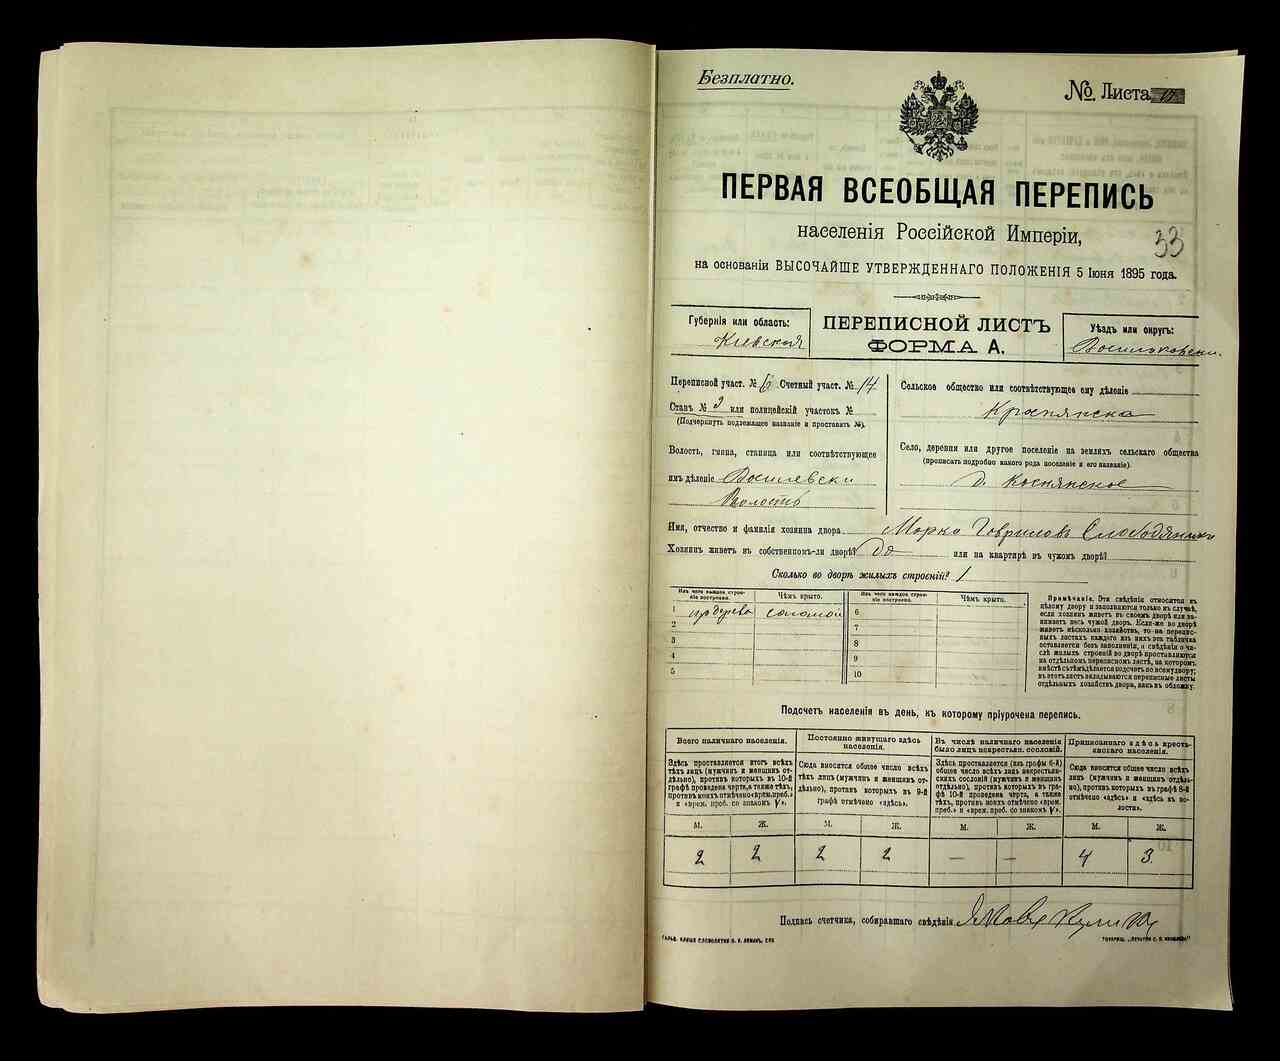 Безплатно.
№. Листа
ПЕРВАЯ ВСЕОБЩАЯ ПЕРЕПИСЬ
населенія Россійской Имперіи,
33
на основаніи ВЫСОЧАЙШЕ УТВЕРЖДЕННАГО ПОЛОЖЕНІЯ 5 Іюня 1895 года.
Губернія или область:
Кіевская
ПЕРЕПИСНОЙ ЛИСТЪ
ФОРМА А.
Уѣздъ или округъ:
Переписной участ. № 6 Счетный участ. № 14
Станъ № 2 или полицейскій участокъ №
(Подчеркнуть подлежащее названіе и проставить №).
Волость, гмина, станица или соотвѣтствующее
имъ дѣленіе
Волость
Сельское общество или соотвѣтствующее ему дѣленіе
Село, деревня или другое поселеніе на земляхъ сельскаго общества
(прописать подробно какого рода поселеніе и его названіе).
Д.
Имя, отчество и фамилія хозяина двора Марко Гаврилов Слободяникъ
Хозяинъ живетъ въ собственномъ-ли дворѣ? Да или на квартирѣ въ чужомъ дворѣ?
Сколько во дворѣ жилыхъ строеній? 1
Изъ чего каждое строе-
ніе построено.
Чѣмъ крыто.
Изъ чего каждое строе-
ніе построено.
Чѣмъ крыто.
1 из дерева соломой 6
2 7
3 8
4 9
5 10
Примѣчаніе. Эти свѣдѣнія относятся къ
цѣлому двору и заполняются только въ случаѣ,
если хозяинъ живетъ въ своемъ дворѣ или за-
нимаетъ весь чужой дворъ. Если-же во дворѣ
живетъ нѣсколько хозяйствъ, то на перепис-
ныхъ листахъ каждаго изъ нихъ эта табличка
оставляется безъ заполненія, а свѣдѣнія о чи-
слѣ жилыхъ строеній во дворѣ проставляются
на отдѣльномъ переписномъ листѣ, на которомъ
вмѣстѣ съ тѣмъ дѣлается подсчетъ по всему двору;
въ этотъ листъ вкладываются переписные листы
отдѣльныхъ хозяйствъ двора, какъ въ обложку.
Подсчетъ населенія въ день, къ которому пріурочена перепись.
Всего наличнаго населенія.
Здѣсь проставляется итогъ всѣхъ
тѣхъ лицъ (мужчинъ и женщинъ от-
дѣльно), противъ которыхъ въ 10-й
графѣ проведена черта, а также тѣхъ,
противъ коихъ отмѣчено «врем. преб.»
и «врем. проб. со знакомъ V».
Постоянно живущаго здѣсь
населенія.
Сюда вносится общее число всѣхъ
тѣхъ лицъ (мужчинъ и женщинъ от-
дѣльно), противъ которыхъ въ 9-й
графѣ отмѣчено «здѣсь».
Въ числѣ наличнаго населенія
было лицъ некрестьян. сословій.
Здѣсь проставляется (изъ графы 6-й)
общее число всѣхъ лицъ некрестьян-
скихъ сословій (мужчинъ и женщинъ
отдѣльно), противъ которыхъ въ гра-
фѣ 10-й проведена черта, а также
тѣхъ, противъ коихъ отмѣчено «врем.
преб.» и «врем. проб. со знакомъ V».
Приписаннаго здѣсь кресть-
янскаго населенія.
Сюда вносится общее число всѣхъ
лицъ (мужчинъ и женщинъ отдѣль-
но), противъ которыхъ въ графѣ 8-й
отмѣчено «здѣсь» и «здѣсь въ во-
лости».
М. Ж. М. Ж. М. Ж. М. Ж.
2 2 2 2 — — 4 3
Подпись счетчика, собиравшаго свѣдѣнія